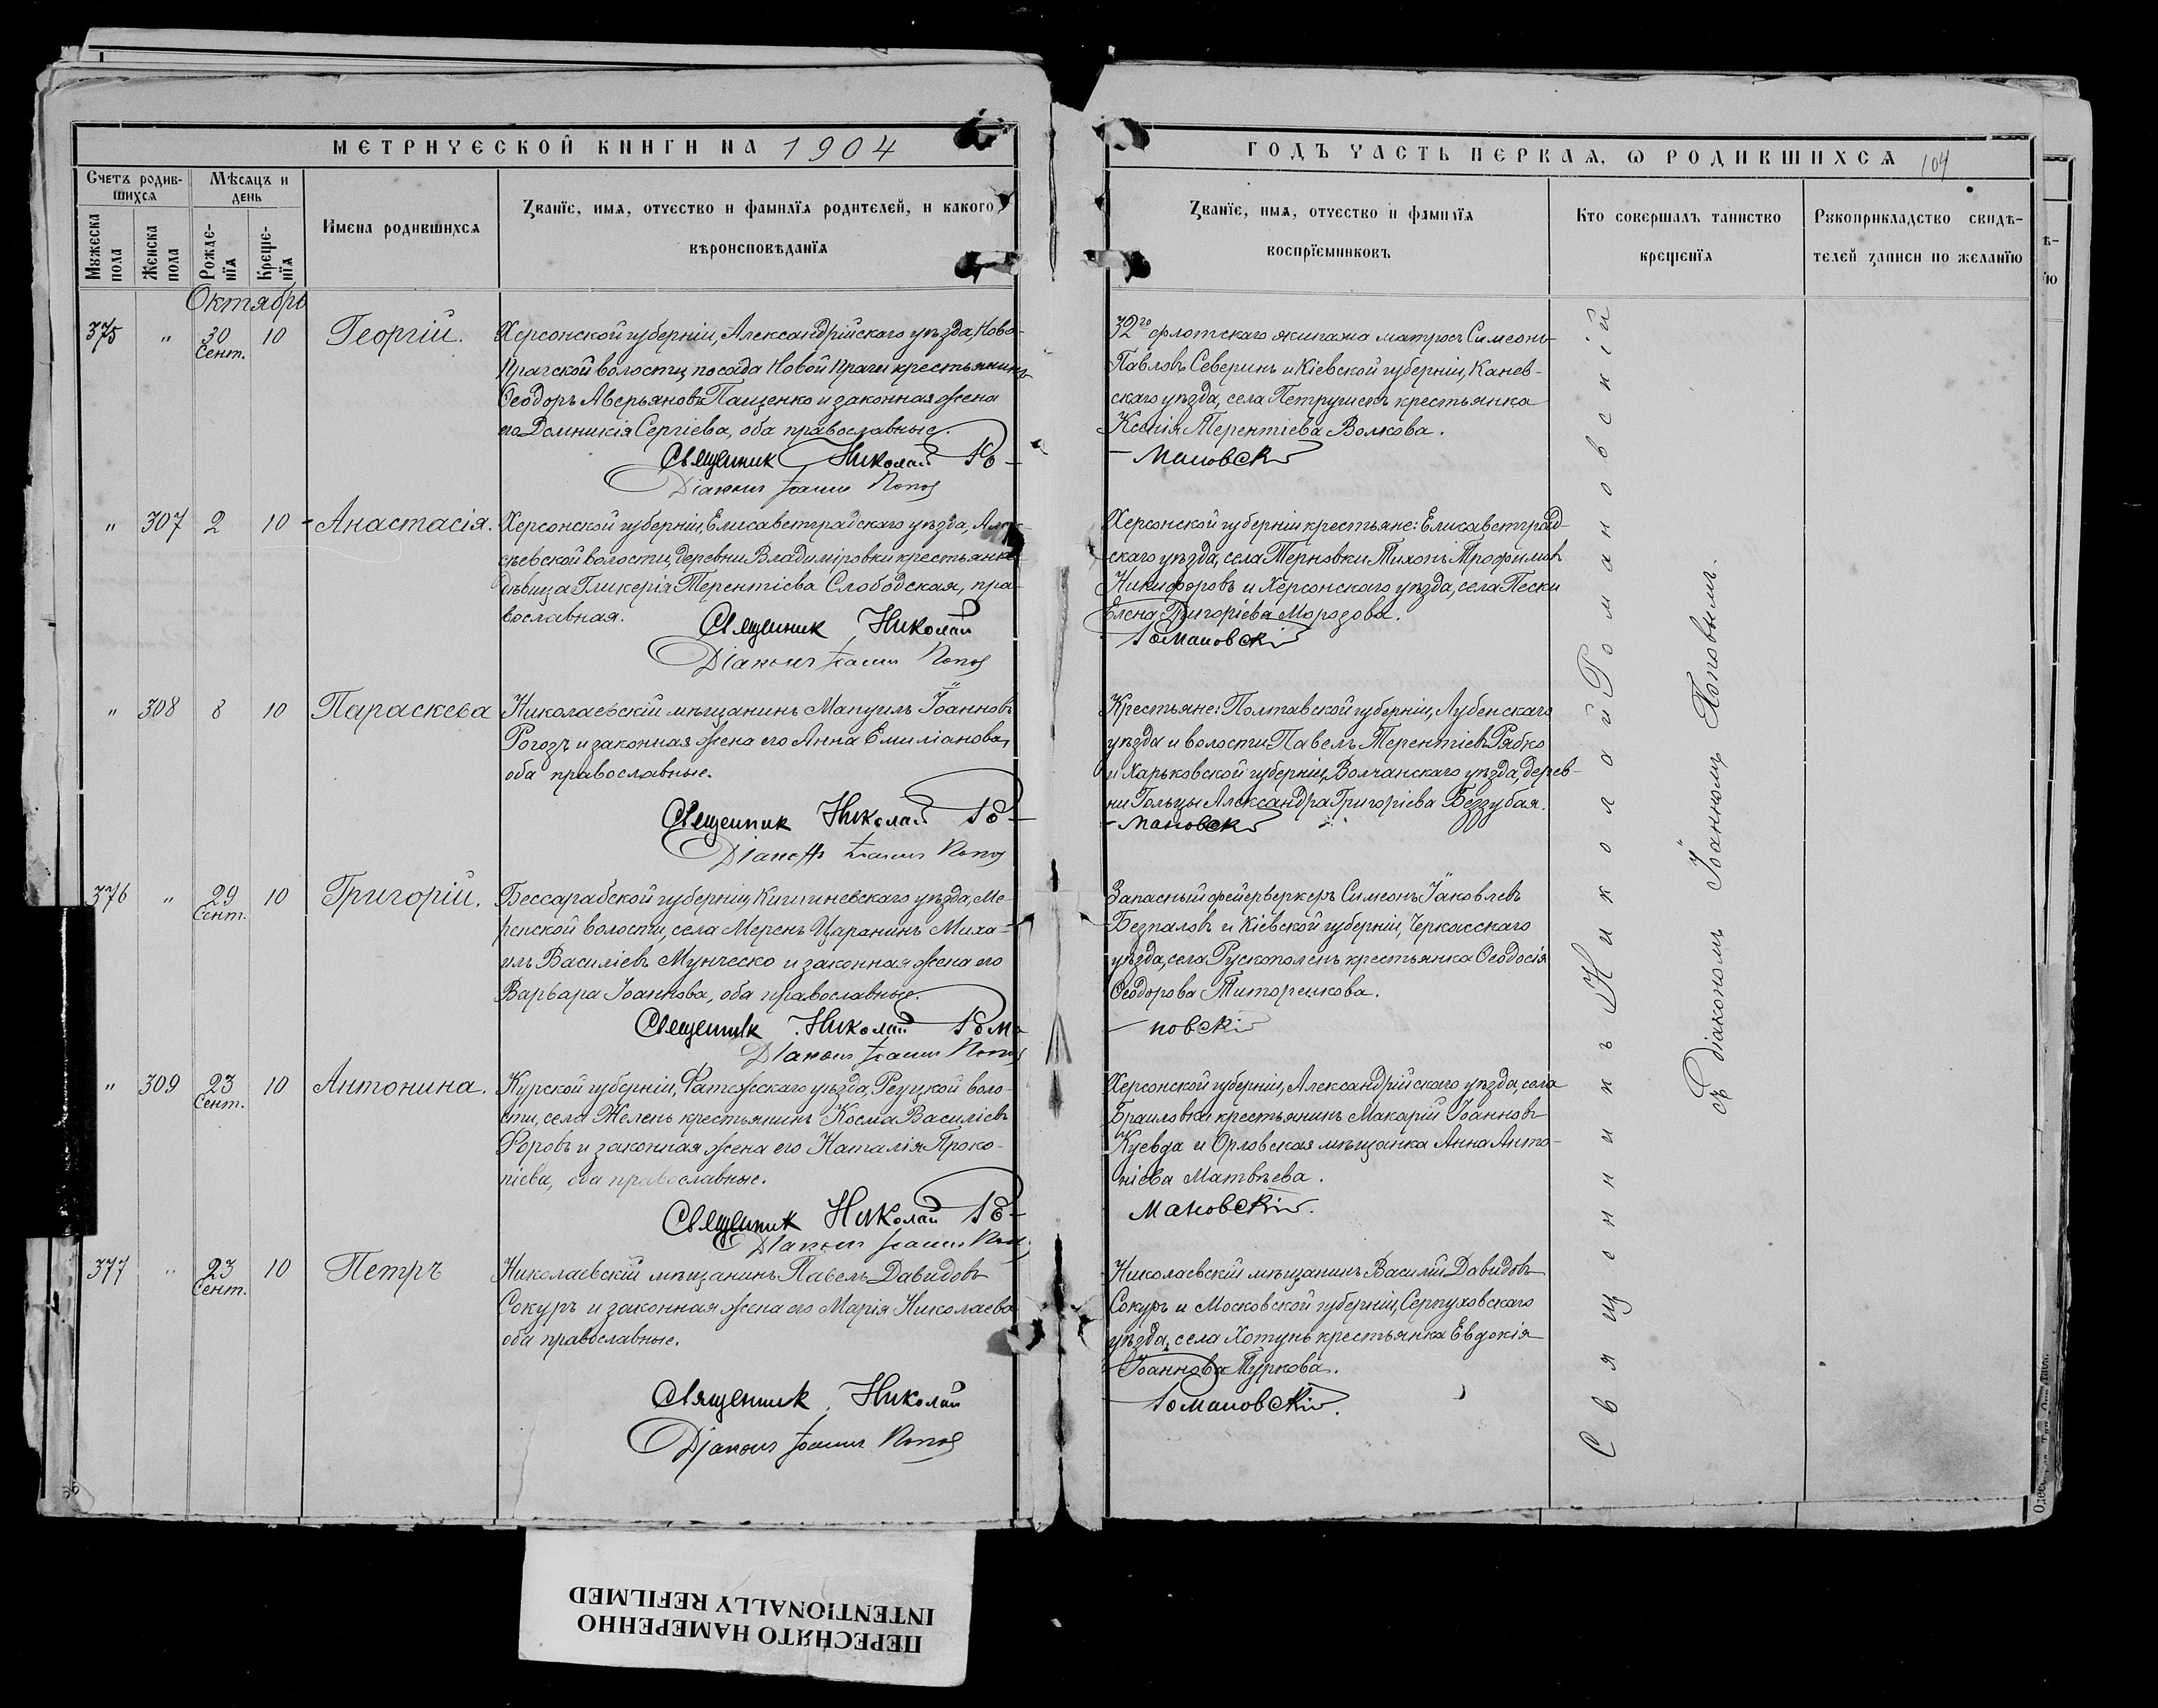 МЕТРИЧЕСКОЙ КНИГИ НА 1904
Счетъ родив-
шихся
Мѣсяцъ и
день
Мужеска
пола
Женска
пола
Рожде-
нїя
Креще-
нїя
Имена родившихся
Званїе, имя, отчество и фамилїя родителей, и какого
вѣроисповѣданїя
Октябрь
375 " 30 Сент. 10 Георгій.
Херсонской губерніи, Александрійскаго уѣзда, Ново-
прагской волости, посада Новой Праги крестьянинъ
Ѳеодоръ Аверьяновъ Пащенко и законная жена
его Домникія Сергіева, оба православные.
Священник Николай Ро-
Діаконъ Іоаннъ Попов
" 307 2 10 Анастасія.
Херсонской губерніи, Елисаветградскаго уѣзда,
сѣевской волости, деревни Владиміровки крестьянка
дѣвица Гликерія Терентіева Слободская, пра-
вославная.
Священник Николай
Діаконъ Іоаннъ Попов
" 308 8 10 Параскева
Николаевскій мѣщанинъ Мануилъ Іоанновъ
Рогозъ и законная жена его Анна Емиліанова,
оба православные.
Священник Николай Ро-
Діаконъ Іоаннъ Попов
376 " 29 Сент. 10 Григорій.
Бессарабской губерніи, Кишиневскаго уѣзда, Ме-
ренской волости, села Меренъ Царанинъ Миха-
илъ Василіевъ Мунческо и законная жена его
Варвара Іоаннова, оба православные.
Священник Николай Рома-
Діаконъ Іоаннъ Попов
" 309 23 Сент. 10 Антонина.
Курской губерніи, Фатежскаго уѣзда, Реуцкой воло-
сти, села Желень крестьянинъ Косма Василіевъ
Форовъ и законная жена его Наталія Проко-
піева, оба православные.
Священник Николай Ро-
Діаконъ Іоаннъ
377 " 23 Сент. 10 Петръ
Николаевскій мѣщанинъ Павелъ Давидовъ
Сокуръ и законная жена его Марія Николаева
оба православные.
Священник Николай
Діаконъ Іоаннъ Попов
ГОДЪ ЧАСТЬ ПЕРВАЯ, Ѡ РОДИВШИХСЯ 104
Званїе, имя, отчество и фамилїя
воспрїемниковъ
Кто совершалъ таинство
крещенїя
Рукоприкладство свидѣ-
телей записи по желанїю
32го флотскаго экипажа матросъ Симеонъ
Павловъ Северинъ и Кіевской губерніи, Канев-
скаго уѣзда, села Петрушекъ крестьянка
Ксенія Терентіева Волкова.
-мановскій
Херсонской губерніи крестьяне: Елисаветград-
скаго уѣзда, села Терновки Тихонъ Трофимовъ
Никифоровъ и Херсонскаго уѣзда, села Пески
Елена Григоріева Морозова.
Романовскій
Крестьяне: Полтавской губерніи, Лубенскаго
уѣзда и волости Павелъ Терентіевъ Рябко
и Харьковской губерніи, Волчанскаго уѣзда, дерев-
ни Гольцы Александра Григоріева Беззубая.
-мановскій
Запасный фейерверкеръ Симеонъ Іаковлевъ
Безпаловъ и Кіевской губерніи, Черкасскаго
уѣзда, села Рускополенъ крестьянка Ѳеодосія
Ѳеодорова Титоренкова.
-новскій
Херсонской губерніи, Александрійскаго уѣзда, села
Браиловки крестьянинъ Макарій Іоанновъ
Куевда и Орловская мѣщанка Анна Анто-
ніева Матвѣева.
мановскій.
Николаевскій мѣщанинъ Василій Давидовъ
Сокуръ и Московской губерніи, Серпуховскаго
уѣзда, села Хотунь крестьянка Евдокія
Іоаннова Туркова.
Романовскій.
Священникъ Николай Романовскій
съ діакономъ Іоанномъ Поповымъ.
ПЕРЕСНЯТО НАМЕРЕННО
INTENTIONALLY REFILMED